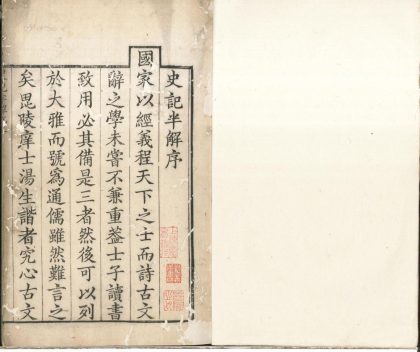 史記半解序
國家以經義程天下之士而詩古文
辭之學未嘗不兼重葢士子讀書
致用必其備是三者然後可以列
於大雅而號爲通儒雖然難言之
矣毘陵庠士湯生諧者究心古文